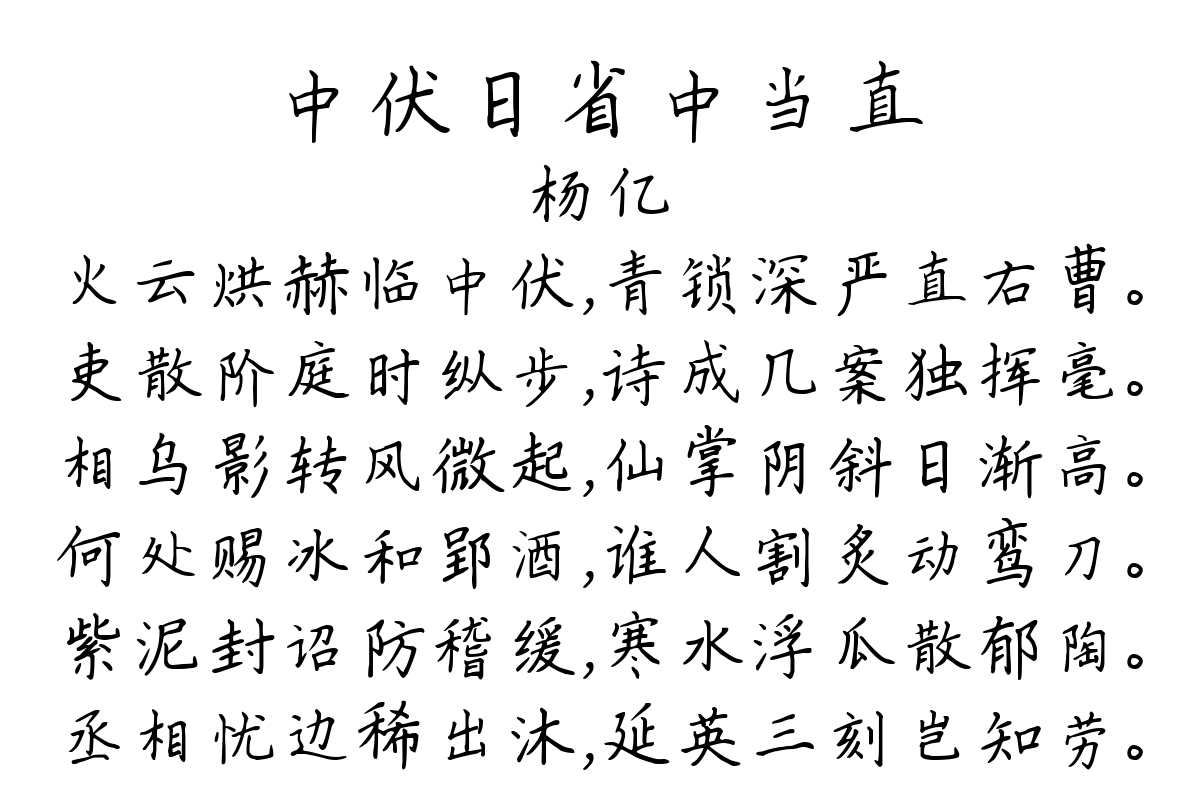 中伏日省中当直
杨亿
火云烘赫临中伏,青锁深严直右曹。
吏散阶庭时纵步,诗成几案独挥毫。
相乌影转风微起,仙掌阴斜日渐高。
何处赐冰和郢酒,谁人割炙动鸾刀。
紫泥封诏防稽缓,寒水浮瓜散郁陶。
丞相忧边稀出沐,延英三刻岂知劳。